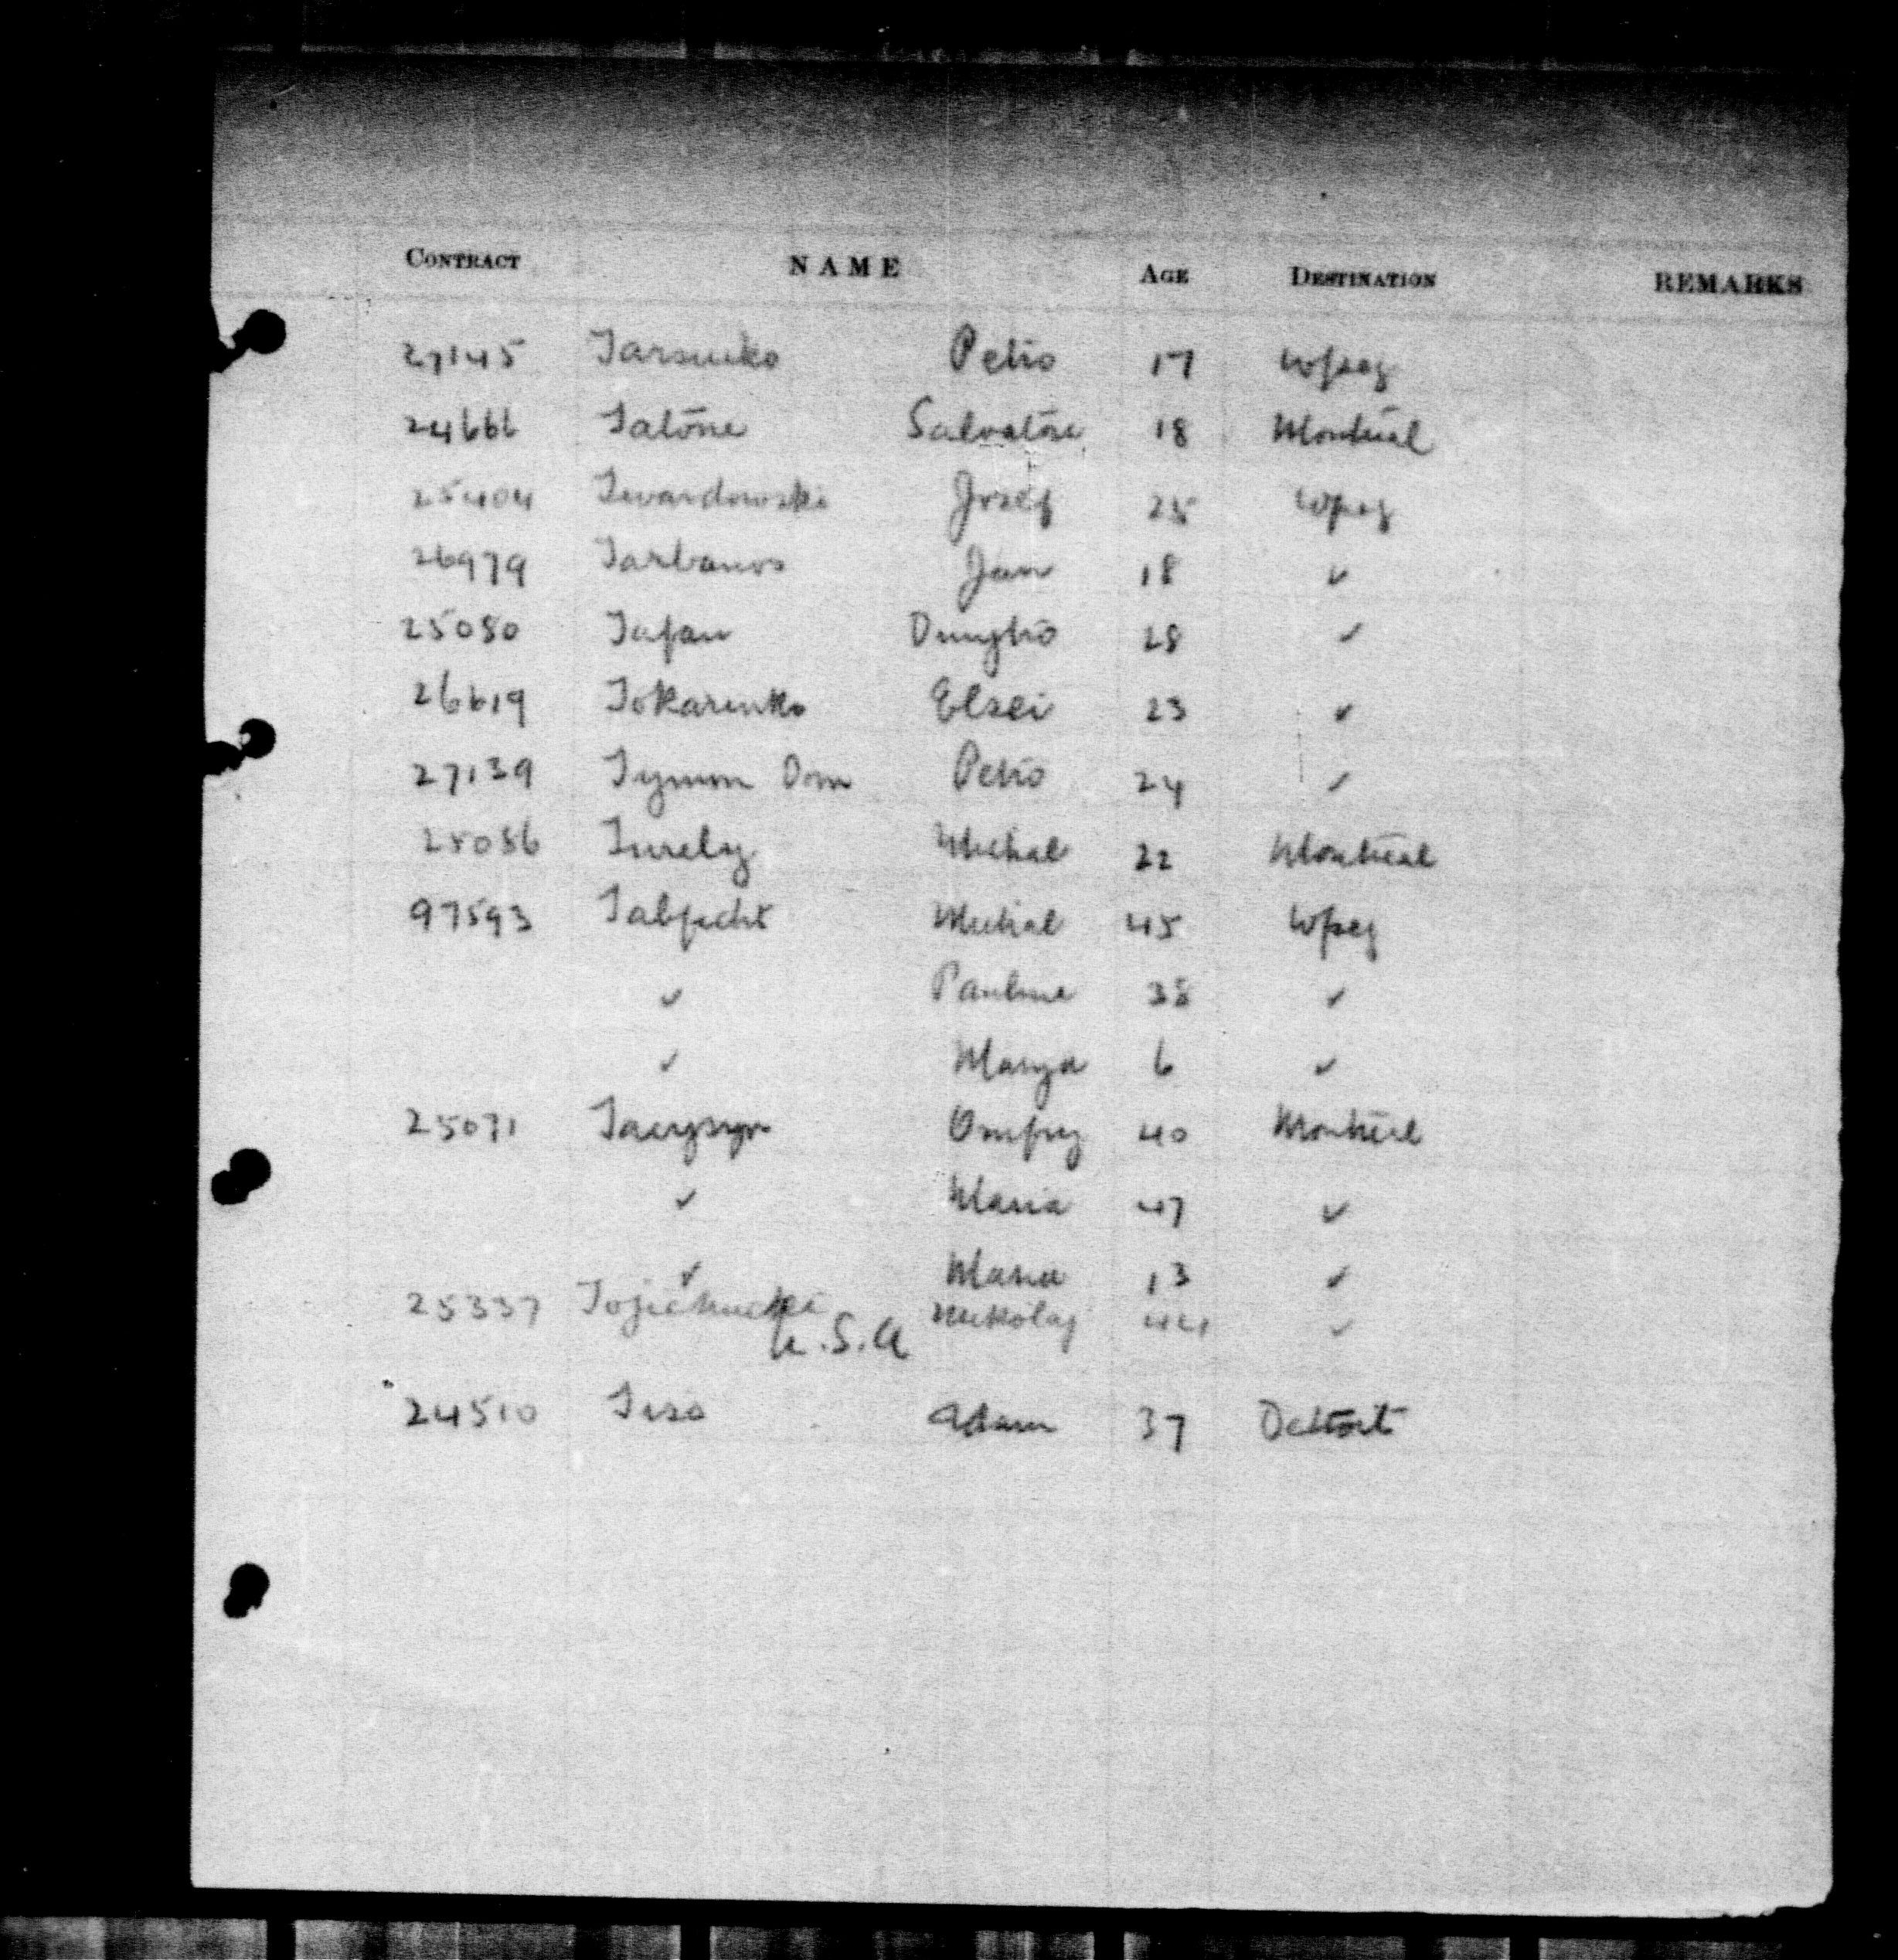 CONTRACT NAME AGE DESTINATION REMARKS
27145 Tarsenko Petro 17 Wpeg
24666 Tatone Salvatore 18 Montreal
25404 Twardowski Jozef 25 Wpeg
26979 Tarbanos Jan 18 ✓
25080 Tafan Dmytro 28 ✓
26619 Tokarenko Elzei 23 ✓
27139 Tymm Dom Petro 24 ✓
25086 Turely Michal 22 Montreal
97593 Michal 45 Wpeg
✓ Pauline 38 ✓
✓ Marya 6 ✓
25071 Onufry 40 Montreal
✓ Maria 47 ✓
✓ Maria 13 ✓
25337 Mikolaj 44 ✓
U.S.A
24510 Adam 37 Detroit